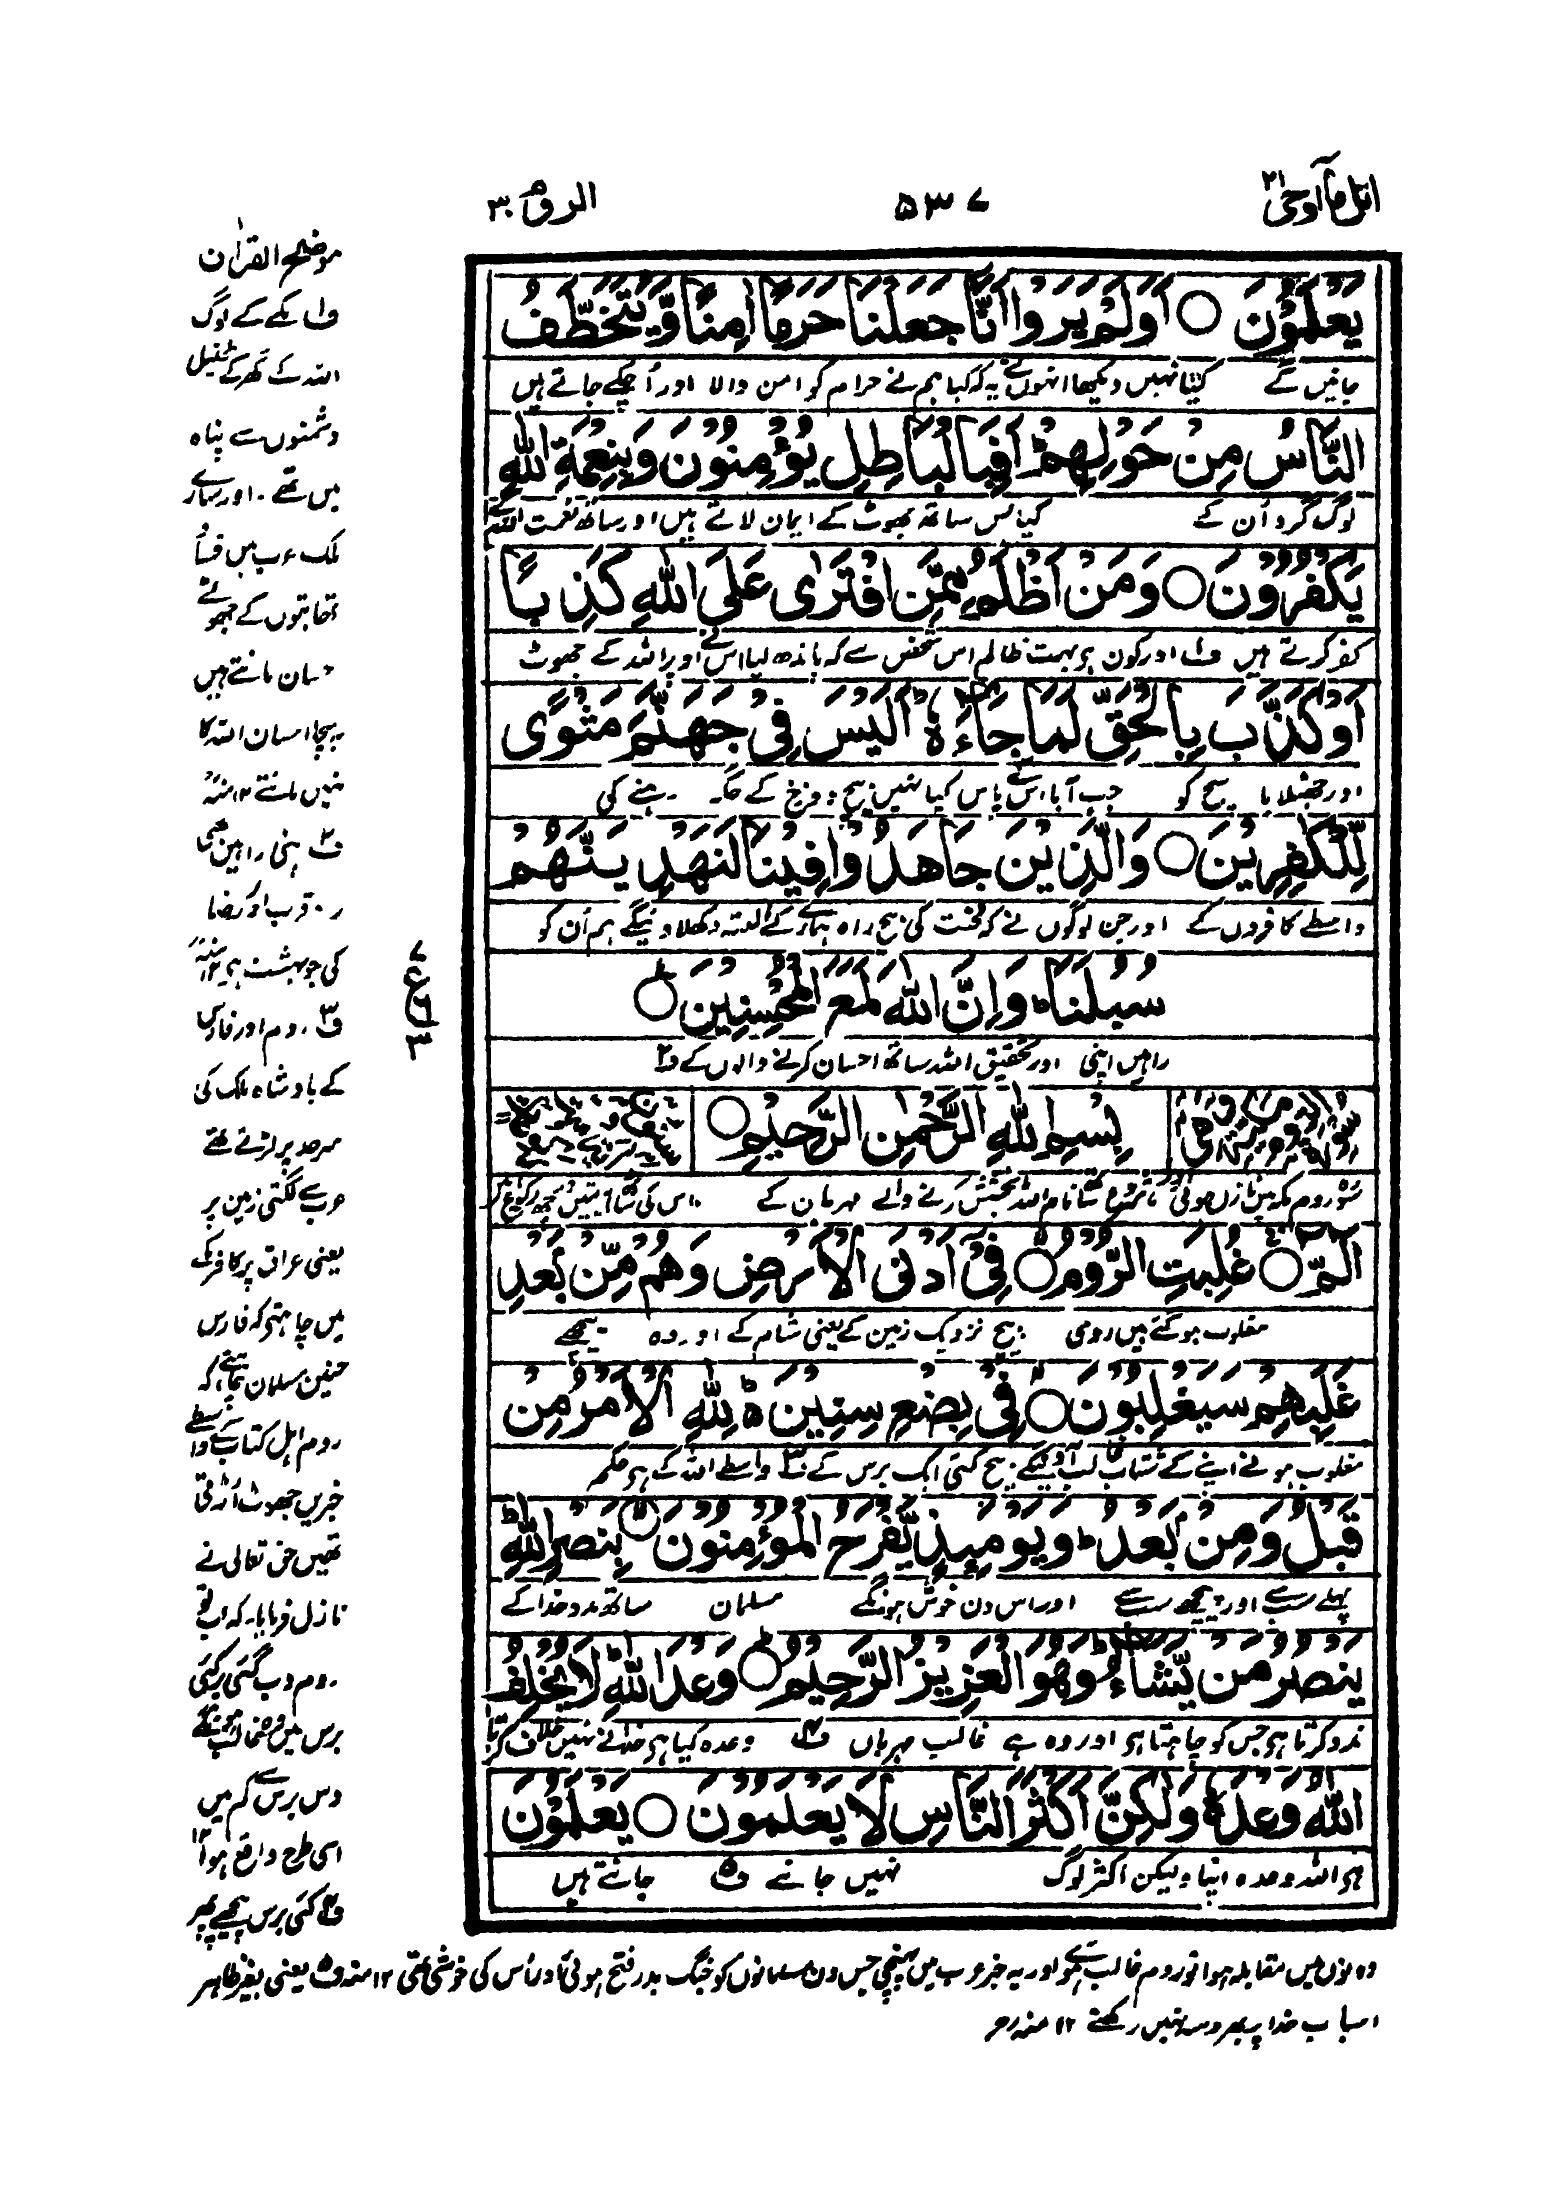 اتل مآ اوحی ۲۱
۵۳۷
الروم ۳۰
یَعۡلَمُوۡنَ ○ اَوَلَمۡ یَرَوۡا اَنَّا جَعَلۡنَا حَرَمًا اٰمِنًا وَّیُتَخَطَّفُ
جانیں گے کیا نہیں دیکھا انہوں نے یہ کہ کیا ہم نے حرام کو امن والا اور اُچکے جاتے ہیں
النَّاسُ مِنۡ حَوۡلِهِمۡ ؕ اَفَبِالۡبَاطِلِ یُؤۡمِنُوۡنَ وَبِنِعۡمَةِ اللّٰهِ
لوگ گرد اُن کے کیا پس ساتھ جھوٹ کے ایمان لاتے ہیں اور ساتھ نعمت اللہ کے
یَكۡفُرُوۡنَ ○ وَمَنۡ اَظۡلَمُ مِمَّنِ افۡتَرٰی عَلَی اللّٰهِ كَذِبًا
کفر کرتے ہیں ف۱ اور کون ہے بہت ظالم اس شخص سے کہ باندھ لیا اس نے اوپر اللہ کے جھوٹ
اَوۡ كَذَّبَ بِالۡحَقِّ لَمَّا جَآءَهٗ ؕ اَلَیۡسَ فِیۡ جَهَنَّمَ مَثۡوًی
اور جھٹلایا سچ کو جب آیا اس کے پاس کیا نہیں بیچ دوزخ کے جگہ رہنے کی
لِّلۡكٰفِرِیۡنَ ○ وَالَّذِیۡنَ جَاهَدُوۡا فِیۡنَا لَنَهۡدِیَنَّهُمۡ
واسطے کافروں کے اور جن لوگوں نے کہ محنت کی بیچ راہ ہمارے کے البتہ دکھلاویں گے ہم اُن کو
سُبُلَنَا ؕ وَاِنَّ اللّٰهَ لَمَعَ الۡمُحۡسِنِیۡنَ ○
راہیں اپنی اور تحقیق اللہ ساتھ احسان کرنے والوں کے ف۲
بِسۡمِ اللّٰهِ الرَّحۡمٰنِ الرَّحِیۡمِ ○
سورۂ روم مکہ میں نازل ہوئی شروع کرتا ہوں ساتھ نام اللہ بخشش کرنے والے مہربان کے
الٓمّٓ ○ غُلِبَتِ الرُّوۡمُ ○ فِیۡۤ اَدۡنَی الۡاَرۡضِ وَهُمۡ مِّنۡۢ بَعۡدِ
مغلوب ہو گئے ہیں رومی بیچ نزدیک زمین کے یعنی شام کے اور وہ پیچھے
غَلَبِهِمۡ سَیَغۡلِبُوۡنَ ○ فِیۡ بِضۡعِ سِنِیۡنَ ؕ لِلّٰهِ الۡاَمۡرُ مِنۡ
مغلوب ہونے اپنے کے شتاب غالب آویں گے بیچ کئی ایک برس کے ف۳ واسطے اللہ کے ہے حکم
قَبۡلُ وَمِنۡۢ بَعۡدُ ؕ وَیَوۡمَئِذٍ یَّفۡرَحُ الۡمُؤۡمِنُوۡنَ ○ بِنَصۡرِ اللّٰهِ ؕ
پہلے سے اور پیچھے سے اور اس دن خوش ہونگے مسلمان ساتھ مدد خدا کے
یَنۡصُرُ مَنۡ یَّشَآءُ ؕ وَهُوَ الۡعَزِیۡزُ الرَّحِیۡمُ ○ وَعۡدَ اللّٰهِ ؕ لَا یُخۡلِفُ
مدد کرتا ہے جس کو چاہتا ہے اور وہ ہے غالب مہرباں ف۴ وعدہ کیا ہے خدا نے نہیں خلاف کرتا
اللّٰهُ وَعۡدَهٗ وَلٰكِنَّ اَكۡثَرَ النَّاسِ لَا یَعۡلَمُوۡنَ ○ یَعۡلَمُوۡنَ
ہے اللہ وعدہ اپنا ولیکن اکثر لوگ نہیں جانتے ف۵ جانتے ہیں
موضح القرآن
ف۱ مکے کے لوگ
اللہ کے گھر کے طفیل
دشمنوں سے پناہ
میں تھے۔ اور سارے
ملک عرب میں فساد
تھا بتوں کے جھوٹے
احسان مانتے ہیں
یہ سچا احسان اللہ کا
نہیں مانتے ۱۲ منہ
ف۲ اپنی راہیں یعنی
راہ قرب اور رضا
کی جو بہشت ہے ۱۲ منہ
ف۳ روم اور فارس
کے بادشاہ ملک کی
سرحد پر لڑتے تھے
عرب سے لگتی زمین پر
یعنی عراق پر کافر مکے
میں چاہتے کہ فارس
جیتیں مسلمان چاہتے کہ
روم اہل کتاب کے واسطے
خبریں جھوٹ اُڑتی
تھیں حق تعالی نے
نازل فرمایا۔ کہ اب تو
روم دب گئی پر کئی
برس میں وہ غالب ہونگے
دس برس سے کم میں
اسی طرح واقع ہوا
ف۴ کئی برس پیچھے پھر
۷
ع
۶
۳
دونوں میں مقابلہ ہوا تو روم غالب ہوئے اور یہ خبر عرب میں پہنچی جس دن مسلمانوں کو جنگ بدر فتح ہوئی اور اُس کی خوشی تھی ۱۲ منہ ف۵ یعنی بغیر ظاہر
اسباب خدا پر بھروسہ نہیں رکھتے ۱۲ منہ رحمہ